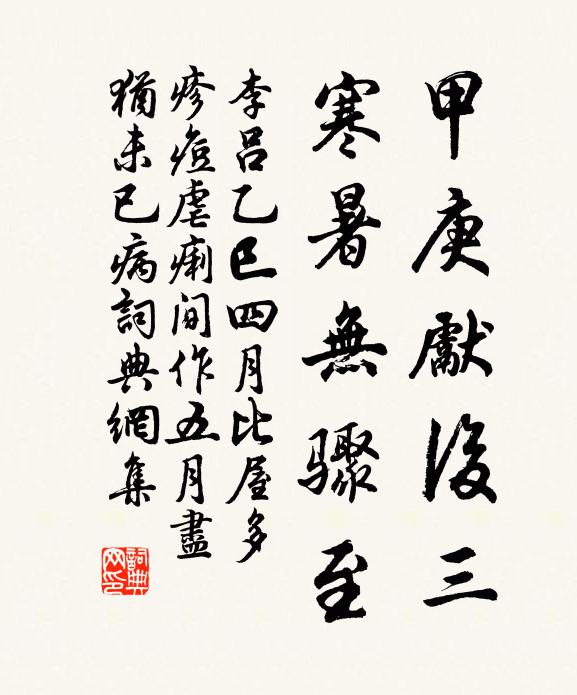 甲庚獻後三
寒暑無驟至
李呂乙巳四月比屋多
疹痘虐痢間作五月盡
猶未已病詞典網集
詞典网印